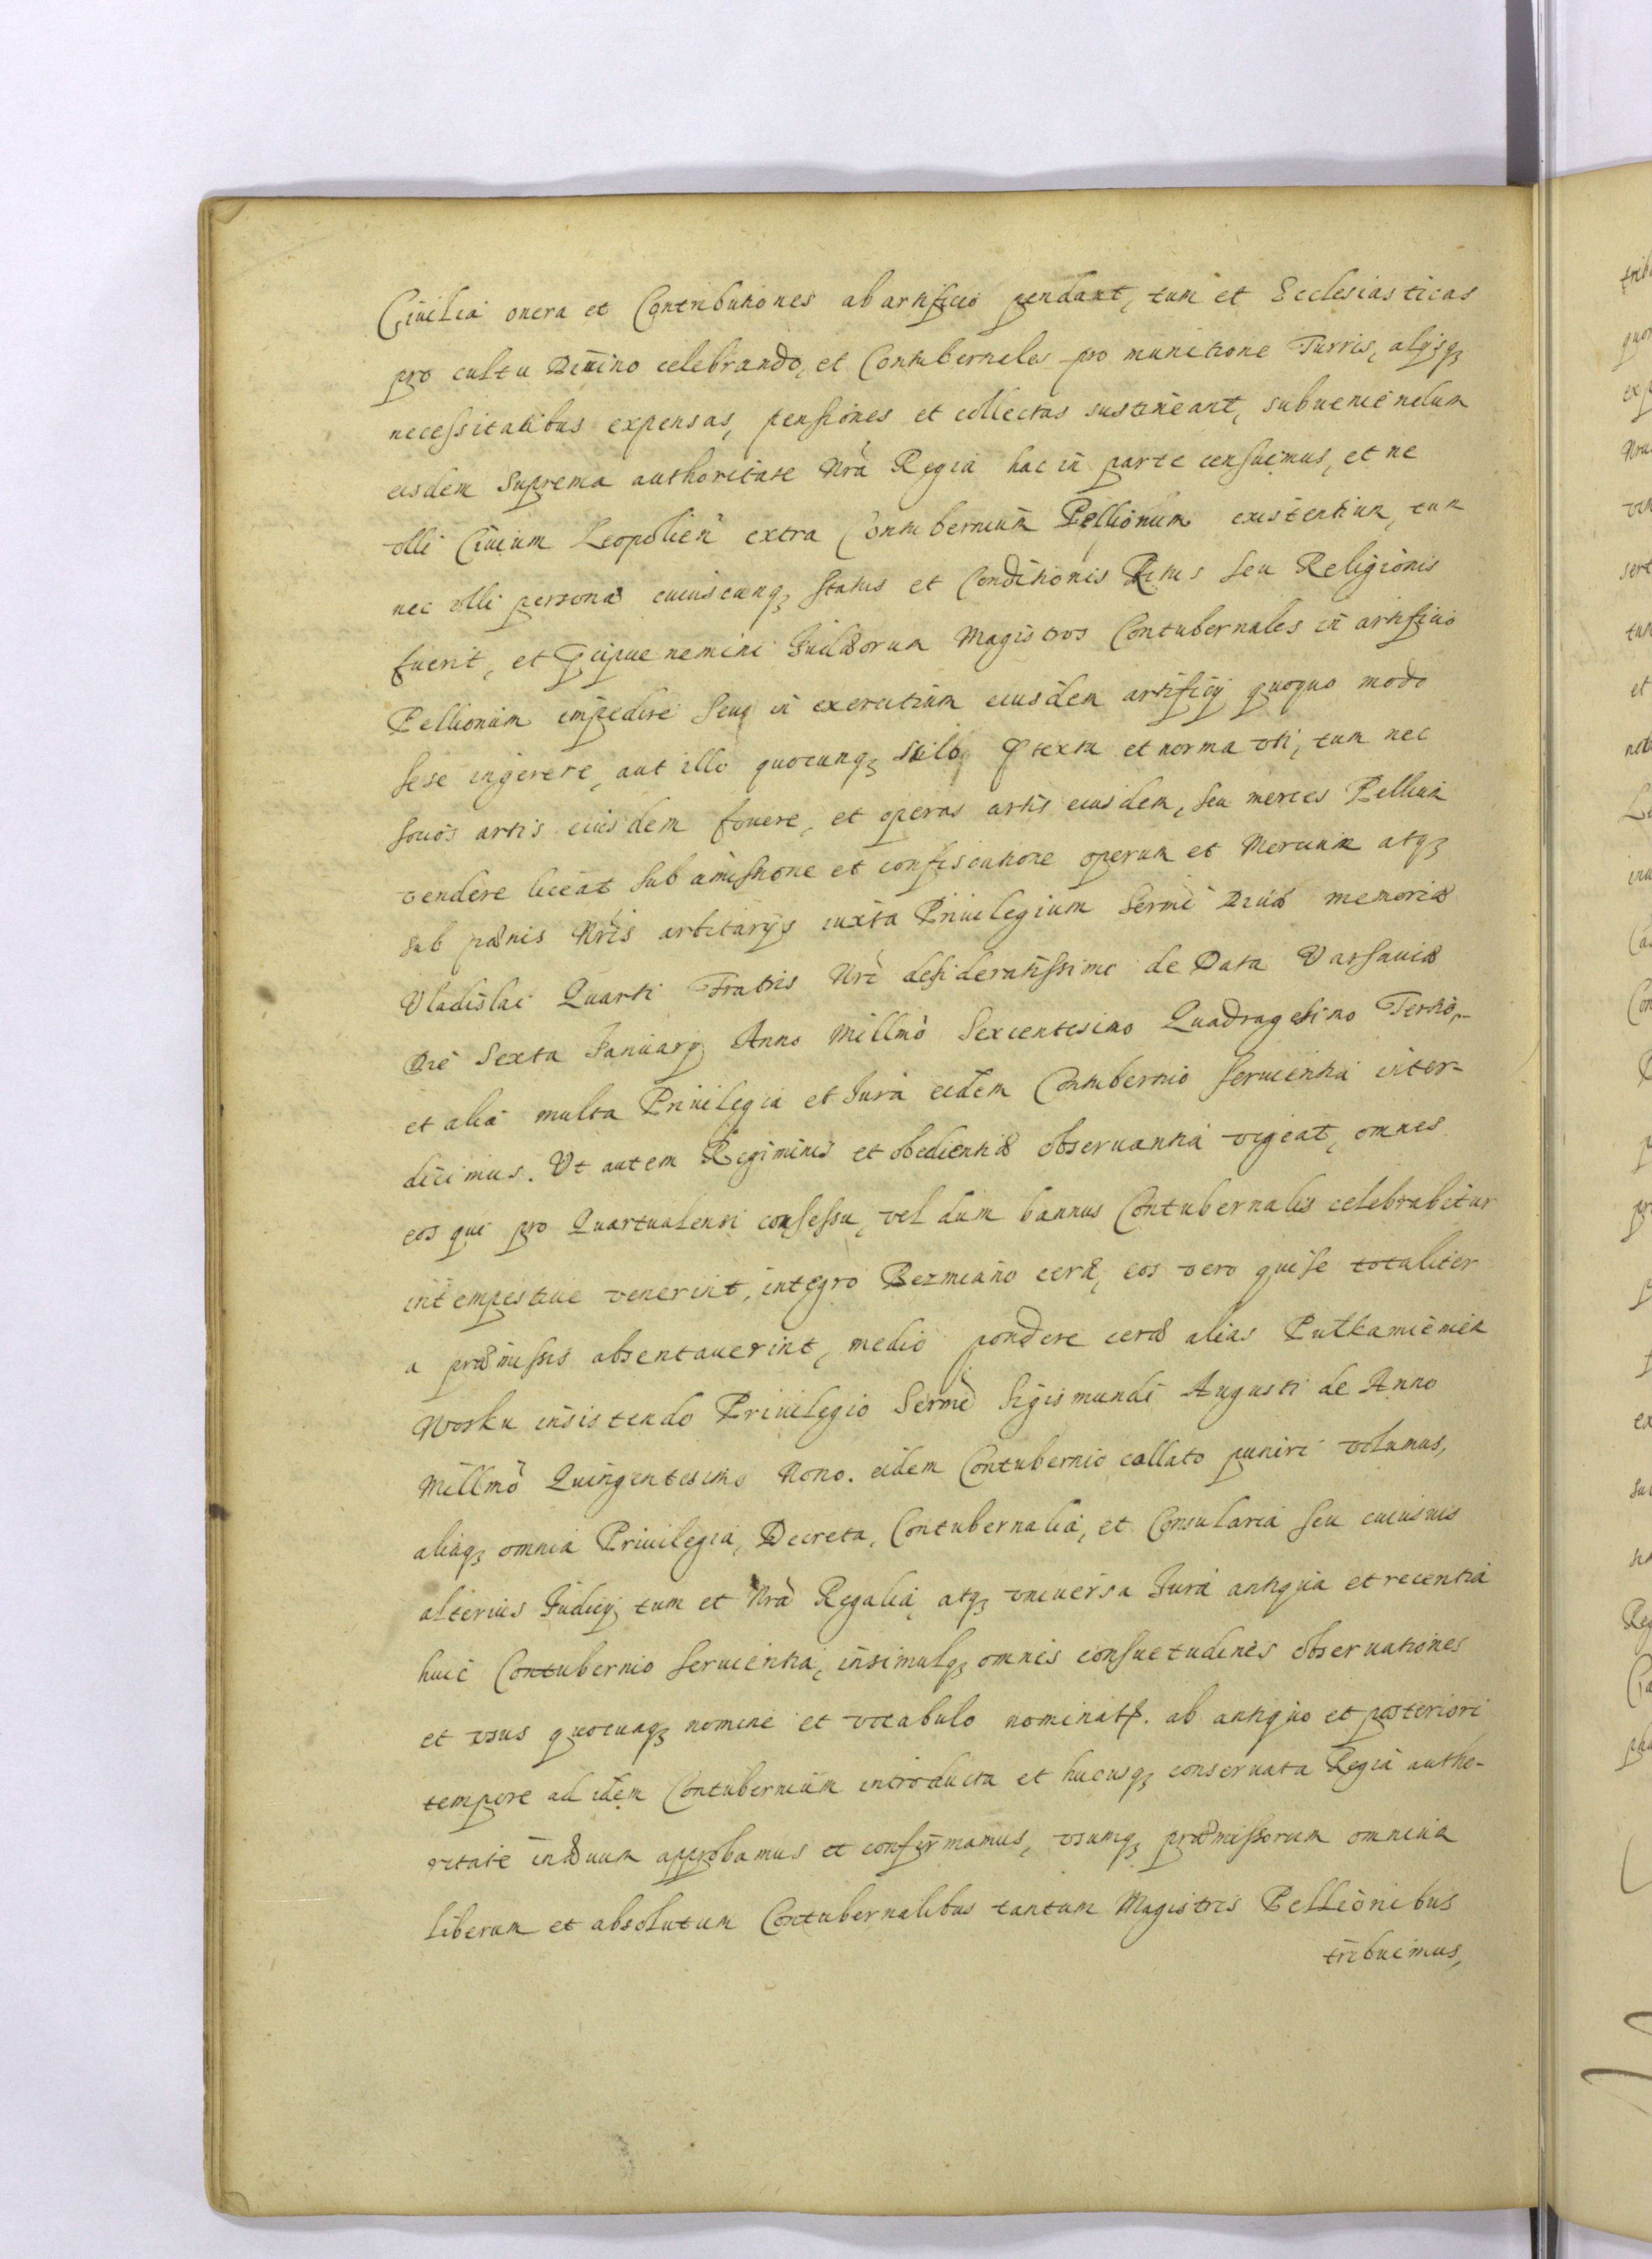 Ciuilia onera et Contributiones ab artificio pendant, tum et Ecclesiasticas
pro cultu Diuino celebrando, et Contubernales pro munitione Turris, alijsq;
necessitatibus expensas, pensiones et collectas sustineant, subueniendum
eisdem Suprema authoritate Nrã Regia hac in parte censuimus, et ne
vlli Ciuium Leopolień extra Contubernium Pellionum existentium, tum
nec vlli personæ cuiuscunq; status et Conditionis Ritus seu Religionis
fuerit, et præcipue nemini Iudæorum Magistros Contubernales in artificio
Pellionum impedire seuq; in exercitium eiusdem artificij quoquo modo
sese ingerere, aut illo quocunq; stilo, prætextu et norma vti, tum nec
socios artis eiusdem fouere, et operas artis eiusdem, seu merces Pellium
vendere liceat sub amissione et confiscatione operum et Mercium atq;
sub pænis Nrĩs arbitarijs iuxta Priuilegium Sermĩ Diuæ memoriæ
Vladislai Quarti Fratris Nrĩ desideratissimi de Data Varsauiæ
Die Sexta Ianuarij Anno Millmõ Sexcentesimo Quadragesimo Tertio,
et alia multa Priuilegia et Iura eidem Contubernio seruientia inter-
dicimus. Vt autem Regiminis et obedientiæ obseruantia vigeat, omnes
eos qui pro Quartualensi consessu, vel dum bannus Contubernalis celebrabitur
intempestiue venerint, integro Bezmiano ceræ, eos vero qui se totaliter
a præmissis absentauerint, medio pondere ceræ alias Pułkamieniem
Wosku insistendo Priuilegio Sermĩ Sigismundi Augusti de Anno
Millmõ Quingentesimo Nono. eidem Contubernio collato puniri volumus,
aliaq; omnia Priuilegia, Decreta, Contubernalia, et Consularia seu cuiusuis
alterius Iudicij tum et Nrã Regalia, atq; vniuersa Iura antiqua et recentia
huic Contubernio seruientia, insimulq; omnes consuetudines obseruationes
et vsus quocunq; nomine et vocabulo nominatȩ. ab antiquo et posteriori
tempore ad idem Contubernium introducta et hucusq; conseruata Regia autho-
ritate in æuum approbamus et confirmamus, vsumq; præmissorum omnium
liberum et absolutum Contubernalibus tantum Magistris Pellionibus
tribuimus,